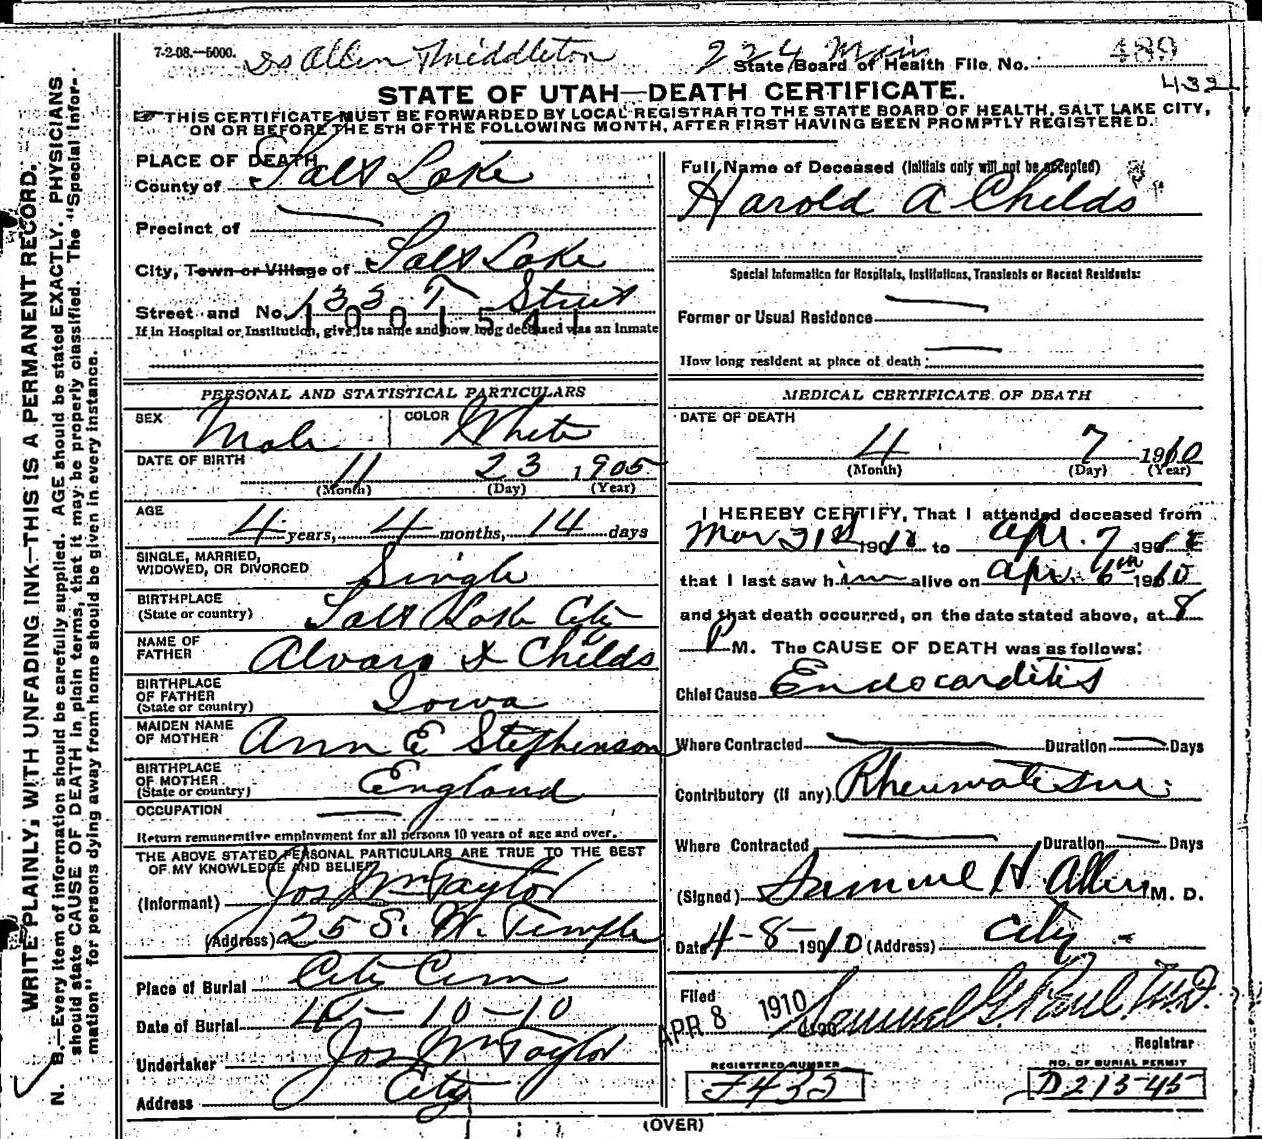 7-2-08.—5000. Drs Allen Middleton 224 Main 489
State Board of Health File No.
432
STATE OF UTAH—DEATH CERTIFICATE.
THIS CERTIFICATE MUST BE FORWARDED BY LOCAL REGISTRAR TO THE STATE BOARD OF HEALTH, SALT LAKE CITY,
ON OR BEFORE THE 5TH OF THE FOLLOWING MONTH, AFTER FIRST HAVING BEEN PROMPTLY REGISTERED.
WRITE PLAINLY, WITH UNFADING INK—THIS IS A PERMANENT RECORD.
N. B.—Every item of information should be carefully supplied. AGE should be stated EXACTLY. PHYSICIANS
should state CAUSE OF DEATH in plain terms, that it may be properly classified. The "Special Infor-
mation" for persons dying away from home should be given in every instance.
PLACE OF DEATH
County of Salt Lake
Precinct of —
City, Town or Village of Salt Lake
Street and No. 133 T Street
1001541
If in Hospital or Institution, give its name and how long deceased was an Inmate
PERSONAL AND STATISTICAL PARTICULARS
SEX Male COLOR White
DATE OF BIRTH 11 23 1905
(Month) (Day) (Year)
AGE 4 years, 4 months, 14 days
SINGLE, MARRIED,
WIDOWED, OR DIVORCED Single
BIRTHPLACE
(State or country) Salt Lake City
NAME OF
FATHER Alvaro X Childs
BIRTHPLACE
OF FATHER
(State or country) Iowa
MAIDEN NAME
OF MOTHER Ann E Stephenson
BIRTHPLACE
OF MOTHER
(State or country) England
OCCUPATION —
Return remunerative employment for all persons 10 years of age and over.
THE ABOVE STATED PERSONAL PARTICULARS ARE TRUE TO THE BEST
OF MY KNOWLEDGE AND BELIEF
(Informant) Jos Wm Taylor
(Address) 25 S. W. Temple
Place of Burial City Cem
Date of Burial 4-10-10
Undertaker Jos Wm Taylor
Address City
Full Name of Deceased (Initials only will not be accepted)
Harold A Childs
Special Information for Hospitals, Institutions, Transients or Recent Residents:
Former or Usual Residence —
How long resident at place of death: —
MEDICAL CERTIFICATE OF DEATH
DATE OF DEATH
4 7 1910
(Month) (Day) (Year)
I HEREBY CERTIFY, That I attended deceased from
Mar 31st 1910 to Apr. 7 1910
that I last saw him alive on Apr. 6th 1910
and that death occurred, on the date stated above, at 8
P M. The CAUSE OF DEATH was as follows:
Chief Cause Endocarditis
Where Contracted — Duration — Days
Contributory (if any) Rheumatism.
Where Contracted — Duration — Days
(Signed) Samuel H. Allen M. D.
Date 4-8-1910 (Address) City
Filed APR 8 1910 Samuel G. Paul M.D.
Registrar
REGISTERED NUMBER NO. OF BURIAL PERMIT
F435 D21545
(OVER)